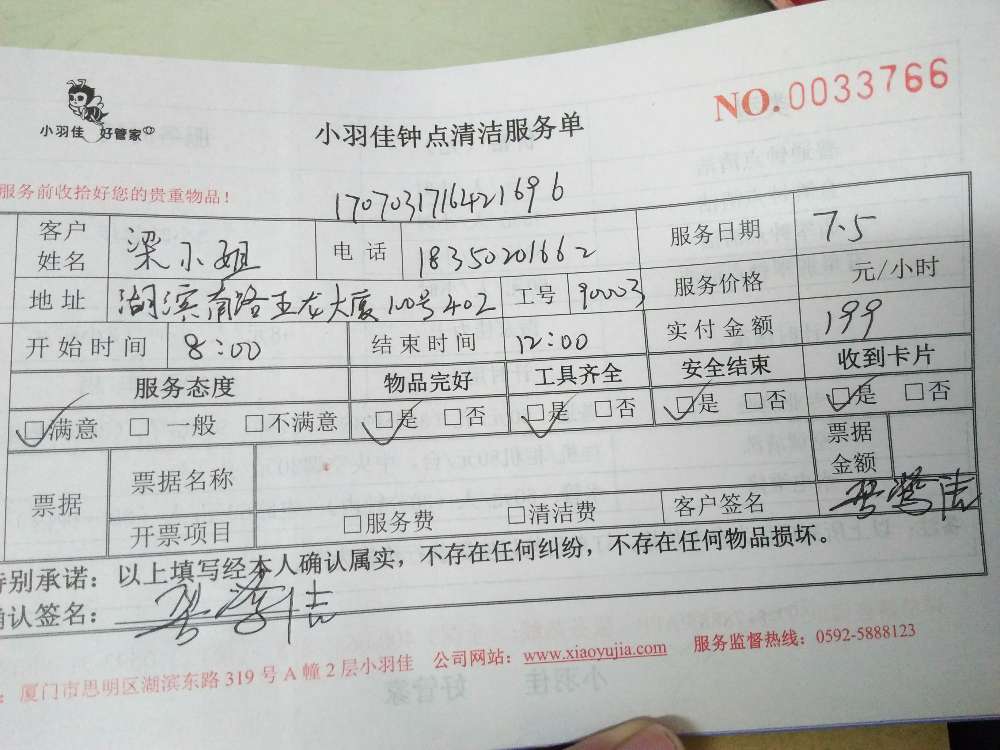 小羽佳 好管家
小羽佳钟点清洁服务单
NO.0033766
服务前收拾好您的贵重物品！
1707031716421696
客户姓名 梁小姐 电话 18350201662 服务日期 7.5
地址 湖滨南路王龙大厦100号402 工号 90003 服务价格 元/小时
开始时间 8:00 结束时间 12:00 实付金额 199
服务态度 物品完好 工具齐全 安全结束 收到卡片
□满意 □ 一般 □不满意 □是 □否 □是 □否 □是 □否 □是 □否
票据 票据名称 票据金额
开票项目 □服务费 □清洁费 客户签名
特别承诺：以上填写经本人确认属实，不存在任何纠纷，不存在任何物品损坏。
确认签名：
：厦门市思明区湖滨东路 319 号 A 幢 2 层小羽佳 公司网站：www.xiaoyujia.com 服务监督热线：0592-5888123